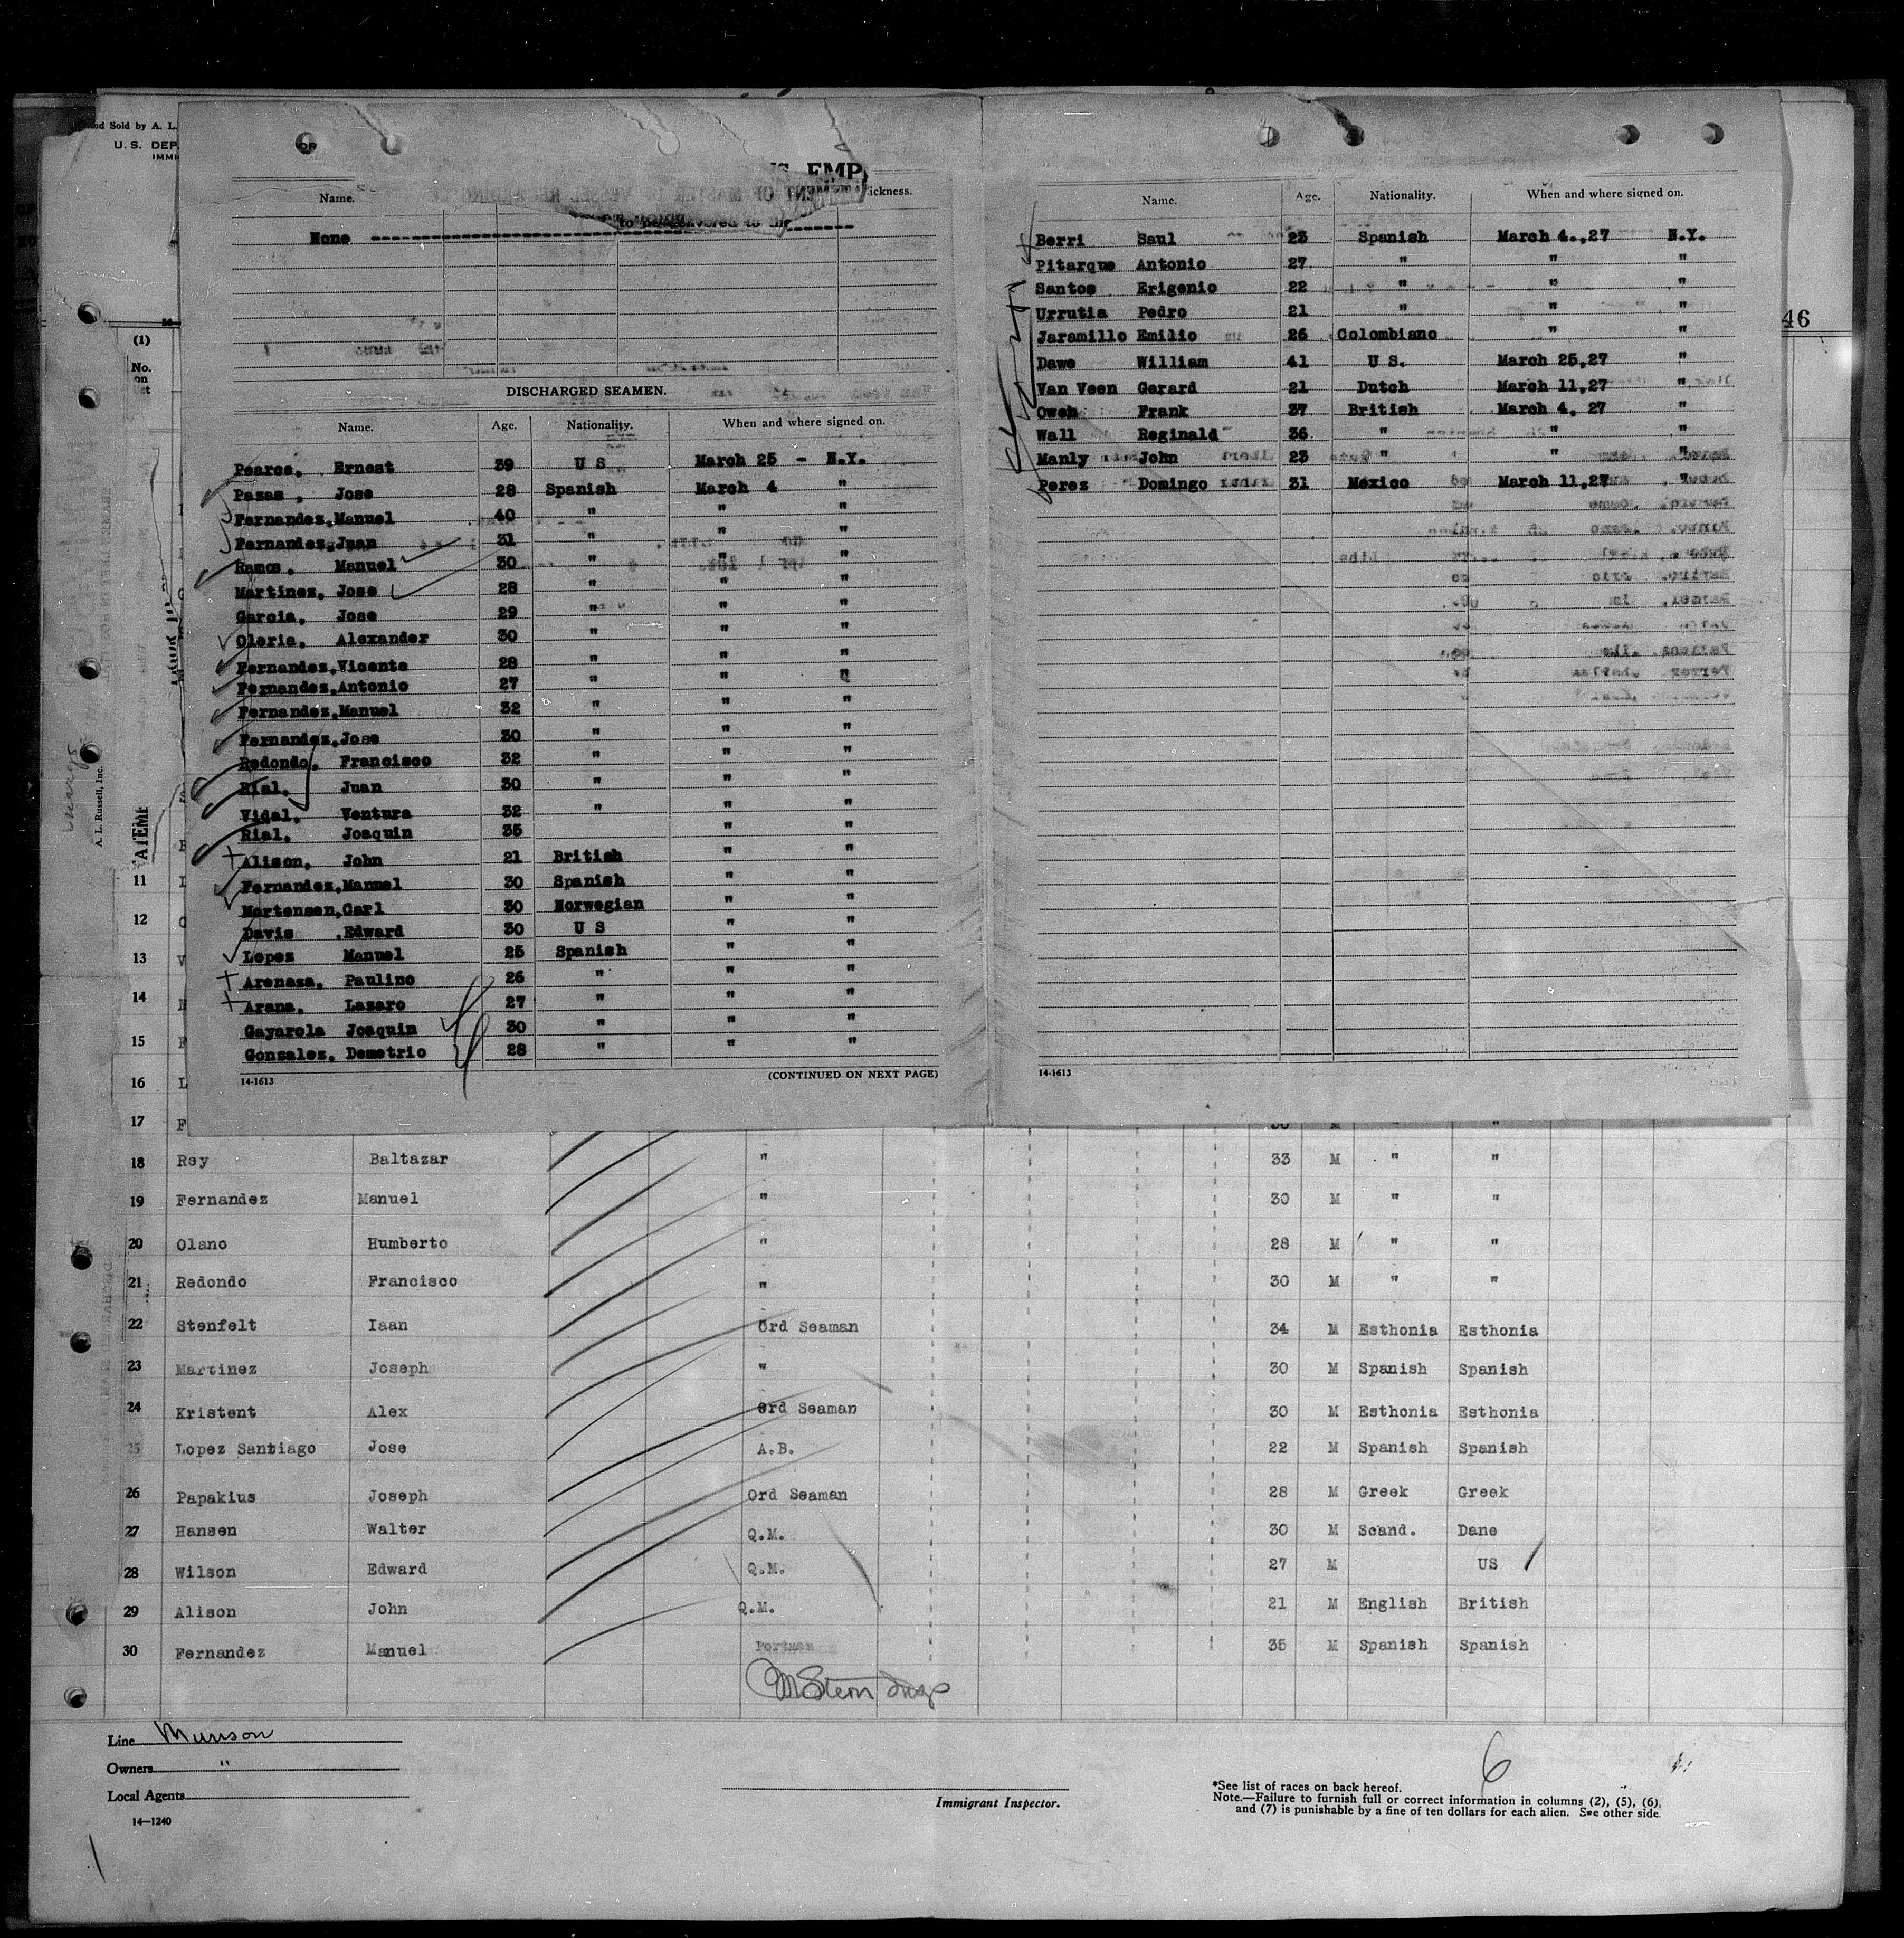 nd Sold by A. L.
U. S. DEP
IMMI
OR
S. EMP
Name.
ickness.
to be delivered to the
None
DISCHARGED SEAMEN.
Name. Age. Nationality. When and where signed on.
Pearce, Ernest 39 U S March 25 - N.Y.
Pazas , Jose 28 Spanish March 4 "
Fernandez,Manuel 40 " " "
Fernandez,Juan 31 " " "
Ramos, Manuel 30 " " "
Martinez, Jose 28 " " "
Garcia, Jose 29 " " "
Oleria, Alexander 30 " " "
Fernandez,Vicente 28 " " "
Fernandez,Antonio 27 " " "
Fernandez,Manuel 32 " " "
Fernandez,Jose 30 " " "
Redondo, Francisco 32 " " "
Rial, Juan 30 " " "
Vidal, Ventura 32 " " "
Rial, Joaquin 35 " "
Alison, John 21 British " "
Fernandez,Manuel 30 Spanish " "
Mortensen,Carl 30 Norwegian " "
Davis .Edward 30 U S " "
Lopez Manuel 25 Spanish " "
Arenaza, Paulino 26 " " "
Arana, Lazaro 27 " " "
Gayarola Joaquin 30 " " "
Gonzalez, Demetrio 28 " " "
14-1613 (CONTINUED ON NEXT PAGE)
Name. Age. Nationality. When and where signed on.
Berri Saul 23 Spanish March 4.,27 N.Y.
Pitarque Antonio 27 " " "
Santos Erigenio 22 " " "
Urrutia Pedro 21 " " "
Jaramillo Emilio 26 Colombiano " "
Dawe William 41 U S. March 25,27 "
Van Veen Gerard 21 Dutch March 11,27 "
Owen Frank 37 British March 4, 27 "
Wall Reginald 36 " " "
Manly John 23 " " "
Perez Domingo 31 Mexico March 11,27 "
14-1613
46
(1)
No.
on
st
A. L. Russell, Inc.
11
12
13
14
15
16 L
17 F
18 Rey Baltazar " 33 M " "
19 Fernandez Manuel " 30 M " "
20 Olano Humberto " 28 M " "
21 Redondo Francisco " 30 M " "
22 Stenfelt Iaan Ord Seaman 34 M Esthonia Esthonia
23 Martinez Joseph " 30 M Spanish Spanish
24 Kristent Alex Ord Seaman 30 M Esthonia Esthonia
25 Lopez Santiago Jose A.B. 22 M Spanish Spanish
26 Papakius Joseph Ord Seaman 28 M Greek Greek
27 Hansen Walter Q.M. 30 M Scand. Dane
28 Wilson Edward Q.M. 27 M US
29 Alison John Q.M. 21 M English British
30 Fernandez Manuel 35 M Spanish Spanish
Line Munson
Owners "
Local Agents
14—1240
Immigrant Inspector.
6
*See list of races on back hereof.
Note.—Failure to furnish full or correct information in columns (2), (5), (6),
and (7) is punishable by a fine of ten dollars for each alien. See other side.